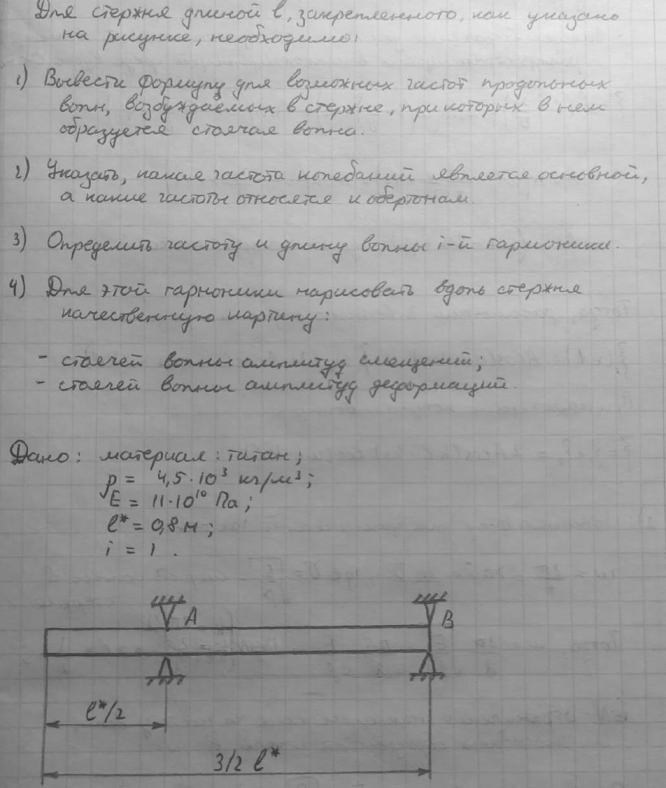 Для стержня длиной l, закрепленного, как указано
на рисунке, необходимо:
1) Вывести формулу для возможных частот продольных
волн, возбуждаемых в стержне, при которых в нем
образуется стоячая волна.
2) Указать, какая частота колебаний является основной,
а какие частоты относятся к обертонам.
3) Определить частоту и длину волны i-й гармоники.
4) Для этой гармоники нарисовать вдоль стержня
качественную картину:
- стоячей волны амплитуд смещений;
- стоячей волны амплитуд деформаций.
Дано: материал: титан;
ρ = 4,5·10³ кг/м³;
E = 11·10¹⁰ Па;
l* = 0,8 м;
i = 1.
A
B
l*/2
3/2 l*